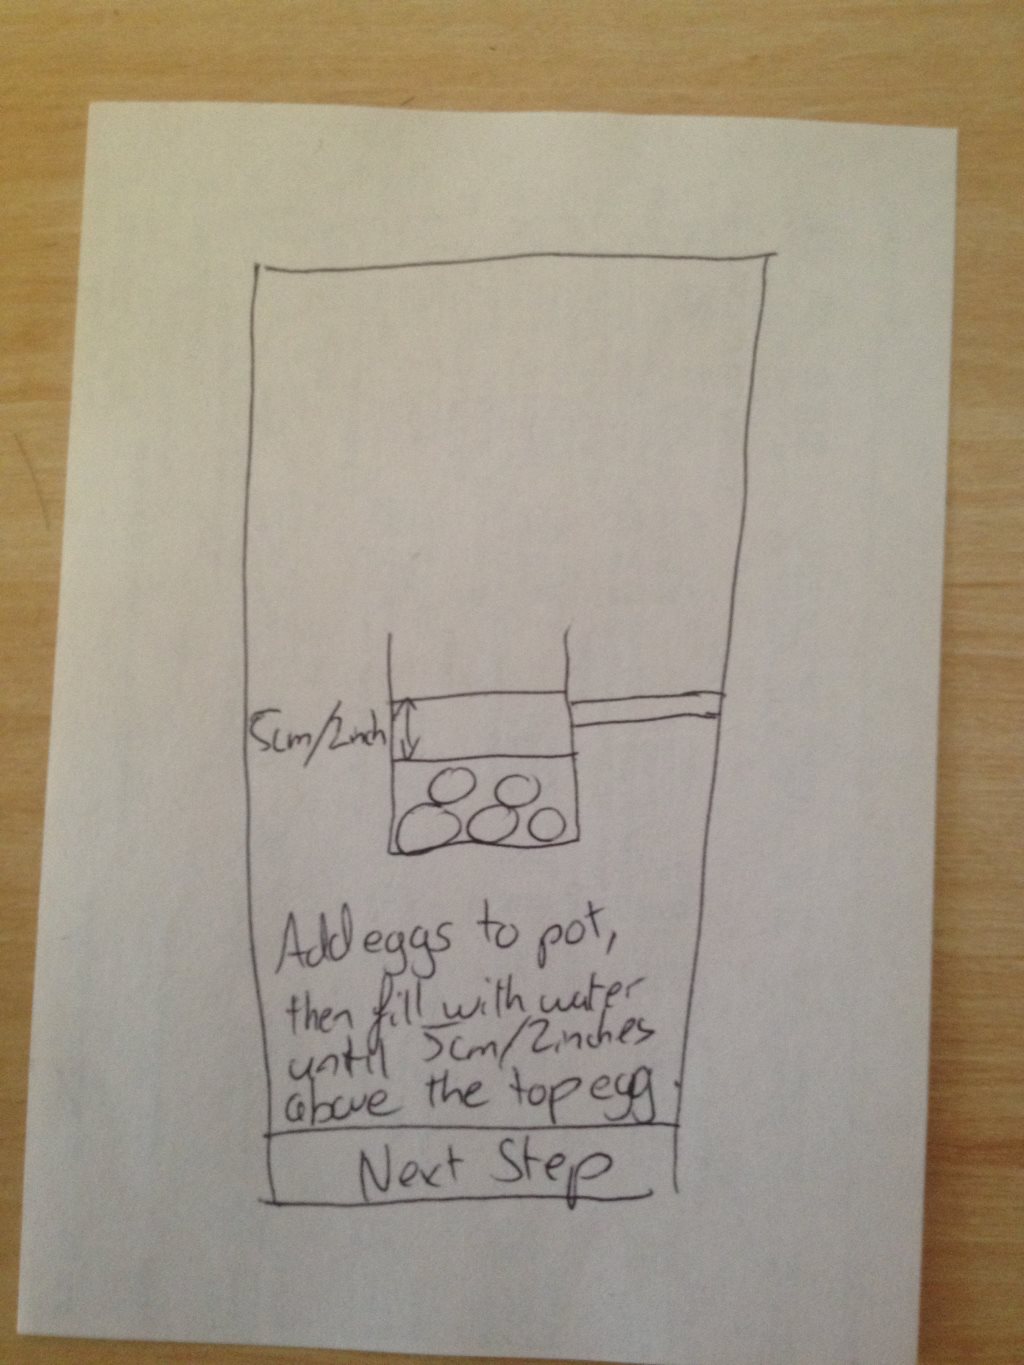 5cm/2inch
Add eggs to pot,
then fill with water
until 5cm/2inches
above the top egg
Next Step